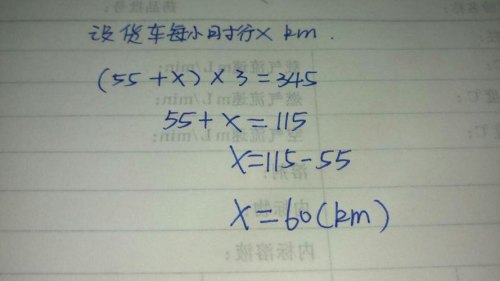 设货车每小时行x km.
(55+x)×3=345
55+x=115
x=115-55
x=60(km)